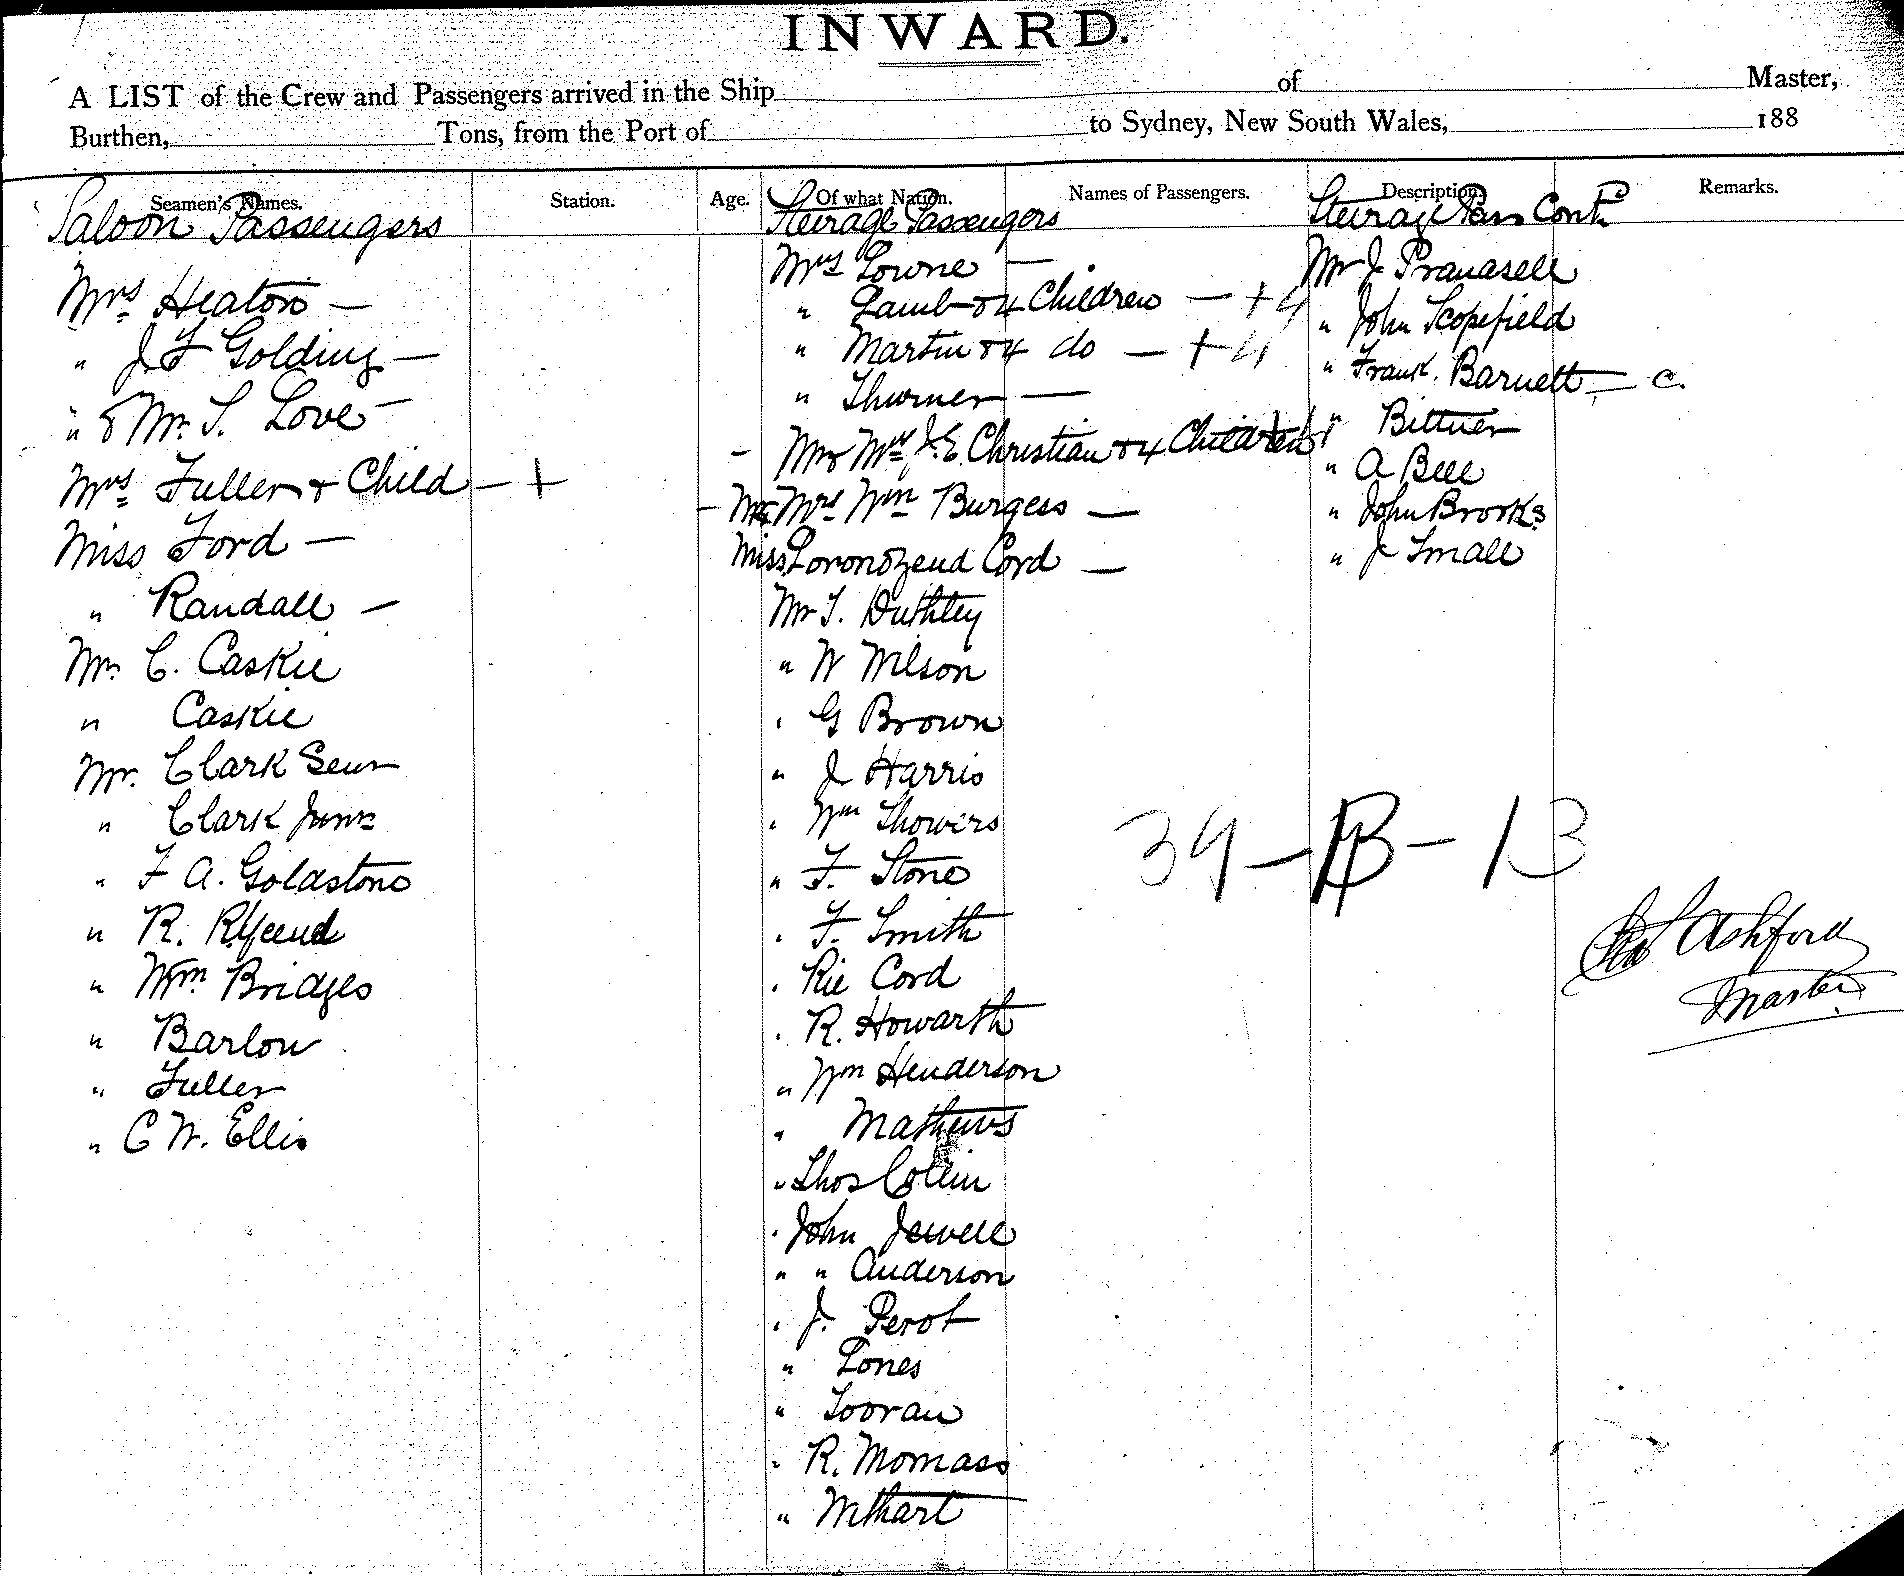 INWARD.
A LIST of the Crew and Passengers arrived in the Ship of Master,
Burthen, Tons, from the Port of to Sydney, New South Wales, 188
Seamen's Names. Station. Age. Of what Nation. Names of Passengers. Description. Remarks.
Saloon Passengers
Mrs Heaton —
" J F Golding —
" & Mr. S. Love —
Mrs Fuller & Child — +
Miss Ford —
" Randall —
Mr. C. Caskie
" Caskie
Mr. Clark Senr
" Clark Junr
" F A. Goldstone
" R.
" Wm Bridges
" Barlow
" Fuller
" C W. Ellis
Steerage Passengers
Mrs Lowne —
" Lamb & 4 Children — + 4
" Martin & 4 do — + 4
" Thurner —
- Mr & Mrs J. E. Christian & 4 Children
- Mr & Mrs Wm Burgess —
Miss Cord —
Mr T. Duthley
" W Wilson
" G Brown
" J Harris
" Wm Showers
" F. Stone
" F. Smith
" Rie Cord
" R. Howarth
" Wm Henderson
" Mathews
" Thos Collin
" John Jewell
" " Anderson
" J. Perot
" Lones
" Tooran
" R. Momass
"
Steerage Pass Contd
Mr J Pranasell
" John Scopefield
" Frank. Barnett — c.
" Bittner
" A Bell
" John Brooks
" J Small
39 — — 13
Ashford
Master